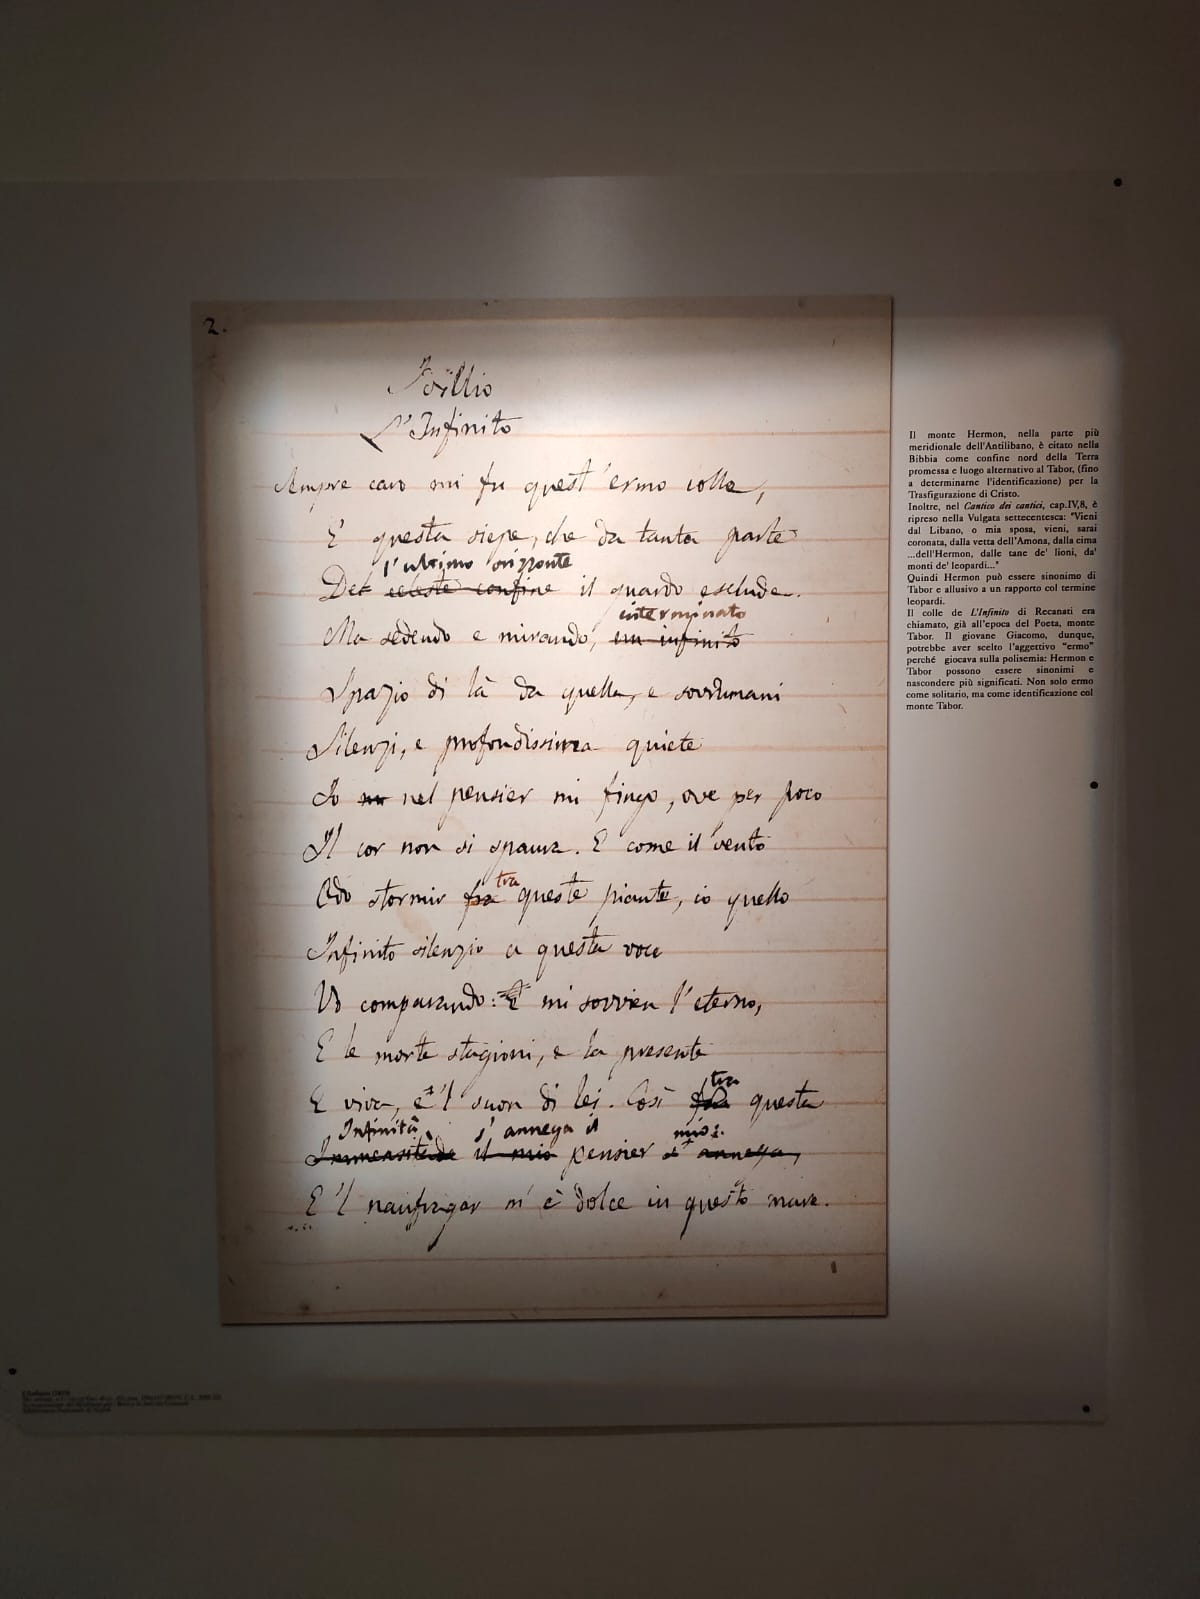 2.
Idillio
L'Infinito
Sempre caro mi fu quest'ermo colle,
E questa siepe, che da tanta parte
l'ultimo orizzonte
Del celeste confine il guardo esclude.
interminato
Ma sedendo e mirando, un infinito
Spazio di là da quella, e sovrumani
Silenzi, e profondissima quiete
Io nel pensier mi fingo, ove per poco
Il cor non si spaura. E come il vento
tra
Odo stormir fra queste piante, io quello
Infinito silenzio a questa voce
Vo comparando: E mi sovvien l'eterno,
E le morte stagioni, e la presente
tra
E viva, e 'l suon di lei. Così fra questa
Infinità s'annega il mio:
Immensitade il mio pensier s'annega,
E 'l naufragar m'è dolce in questo mare.
Il monte Hermon, nella parte più
meridionale dell'Antilibano, è citato nella
Bibbia come confine nord della Terra
promessa e luogo alternativo al Tabor, (fino
a determinarne l'identificazione) per la
Trasfigurazione di Cristo.
Inoltre, nel Cantico dei cantici, cap.IV,8, è
ripreso nella Vulgata settecentesca: "Vieni
dal Libano, o mia sposa, vieni, sarai
coronata, dalla vetta dell'Amona, dalla cima
...dell'Hermon, dalle tane de' lioni, da'
monti de' leopardi..."
Quindi Hermon può essere sinonimo di
Tabor e allusivo a un rapporto col termine
leopardi.
Il colle de L'Infinito di Recanati era
chiamato, già all'epoca del Poeta, monte
Tabor. Il giovane Giacomo, dunque,
potrebbe aver scelto l'aggettivo "ermo"
perché giocava sulla polisemia: Hermon e
Tabor possono essere sinonimi e
nascondere più significati. Non solo ermo
come solitario, ma come identificazione col
monte Tabor.